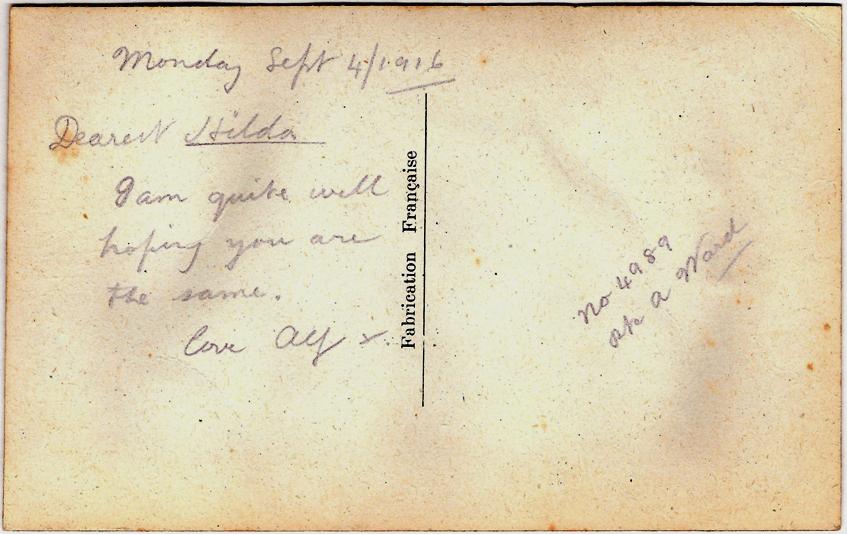 Monday Sept 4/1916
Dearest Hilda
I am quite well
hoping you are
the same.
Love Alf x
Fabrication Française
No 4989
Pte A Ward